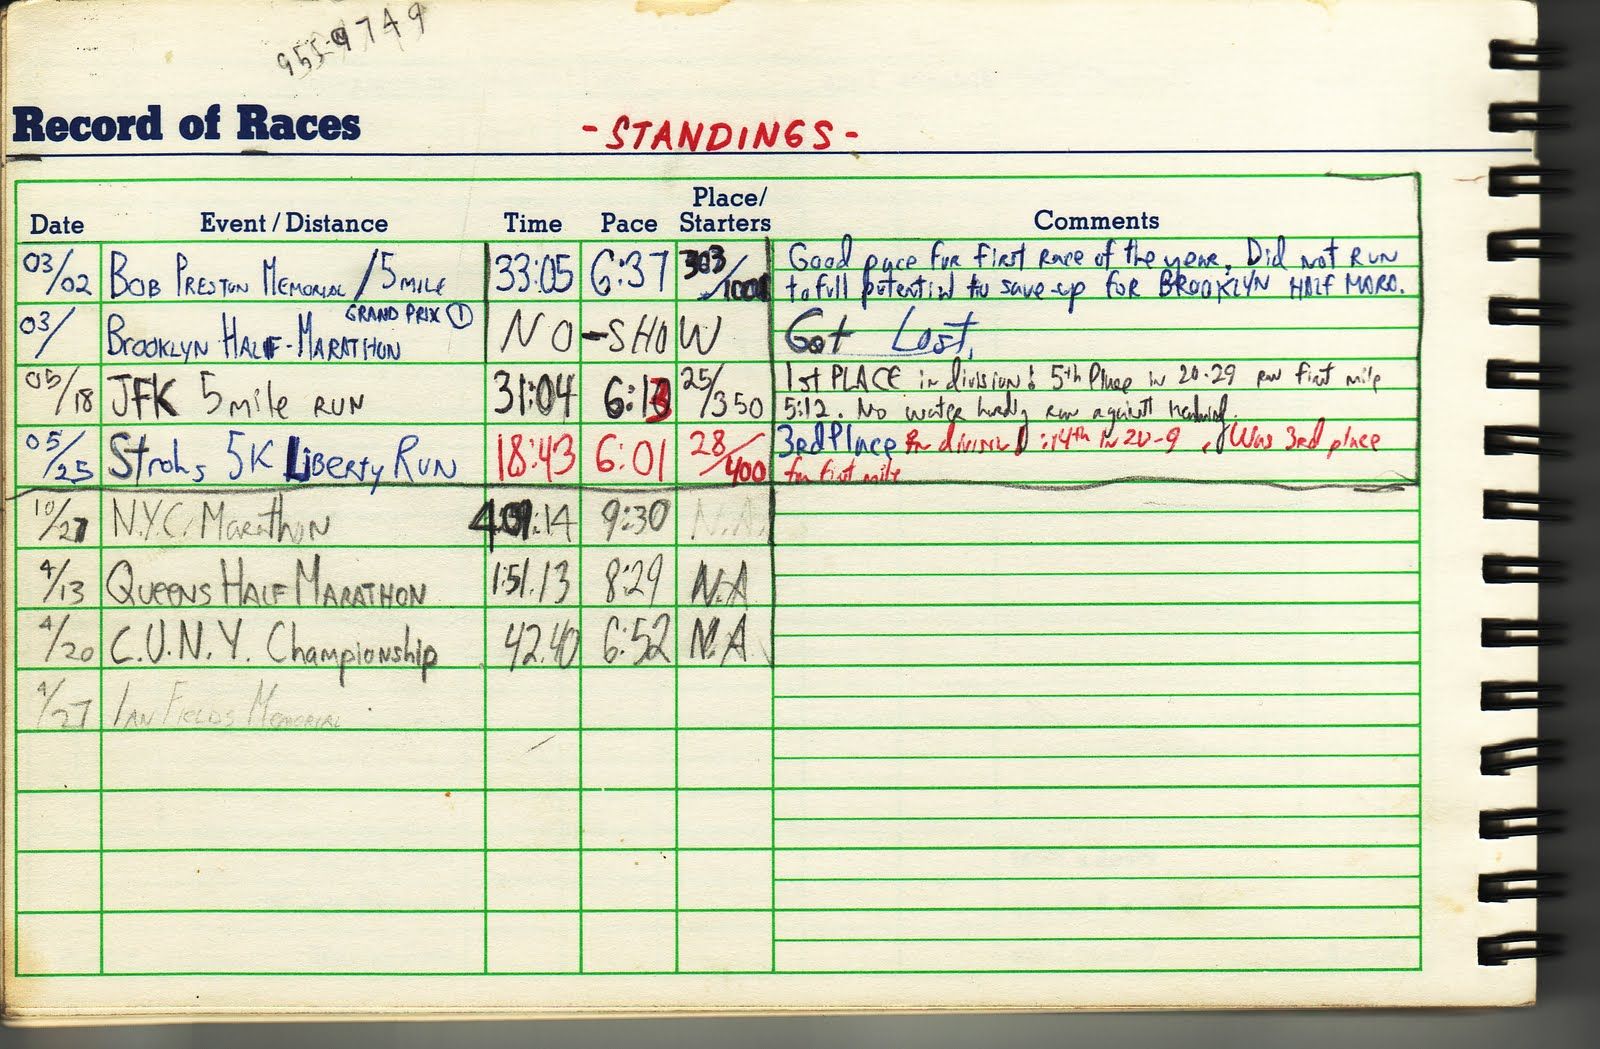 955-9749
Record of Races
- STANDINGS -
Date Event / Distance Time Pace Place/ Starters Comments
03/02 BOB PRESTON MEMORIAL / 5 MILE 33:05 6:37 303/1001 Good pace for first race of the year. Did not RUN
to full potential to save up for BROOKLYN HALF MARA.
GRAND PRIX ①
03/ BROOKLYN HALF-MARATHON NO-SHOW Got Lost.
05/18 JFK 5 mile RUN 31:04 6:13 25/350 1st PLACE in division! 5th Place in 20-29 ran first mile
5:12. No water hardly ran against
05/25 Strohs 5K LIBERTY RUN 18:43 6:01 28/400 3rd Place in division : 14th in 20-9 . Was 3rd place
for first mile
10/27 N.Y.C. Marathon 4:09:14 9:30 N.A.
4/13 QUEENS HALF MARATHON 1:51.13 8:29 N.A
4/20 C.U.N.Y. Championship 42.40 6:52 N.A
4/27 IAN FIELDS MEMORIAL